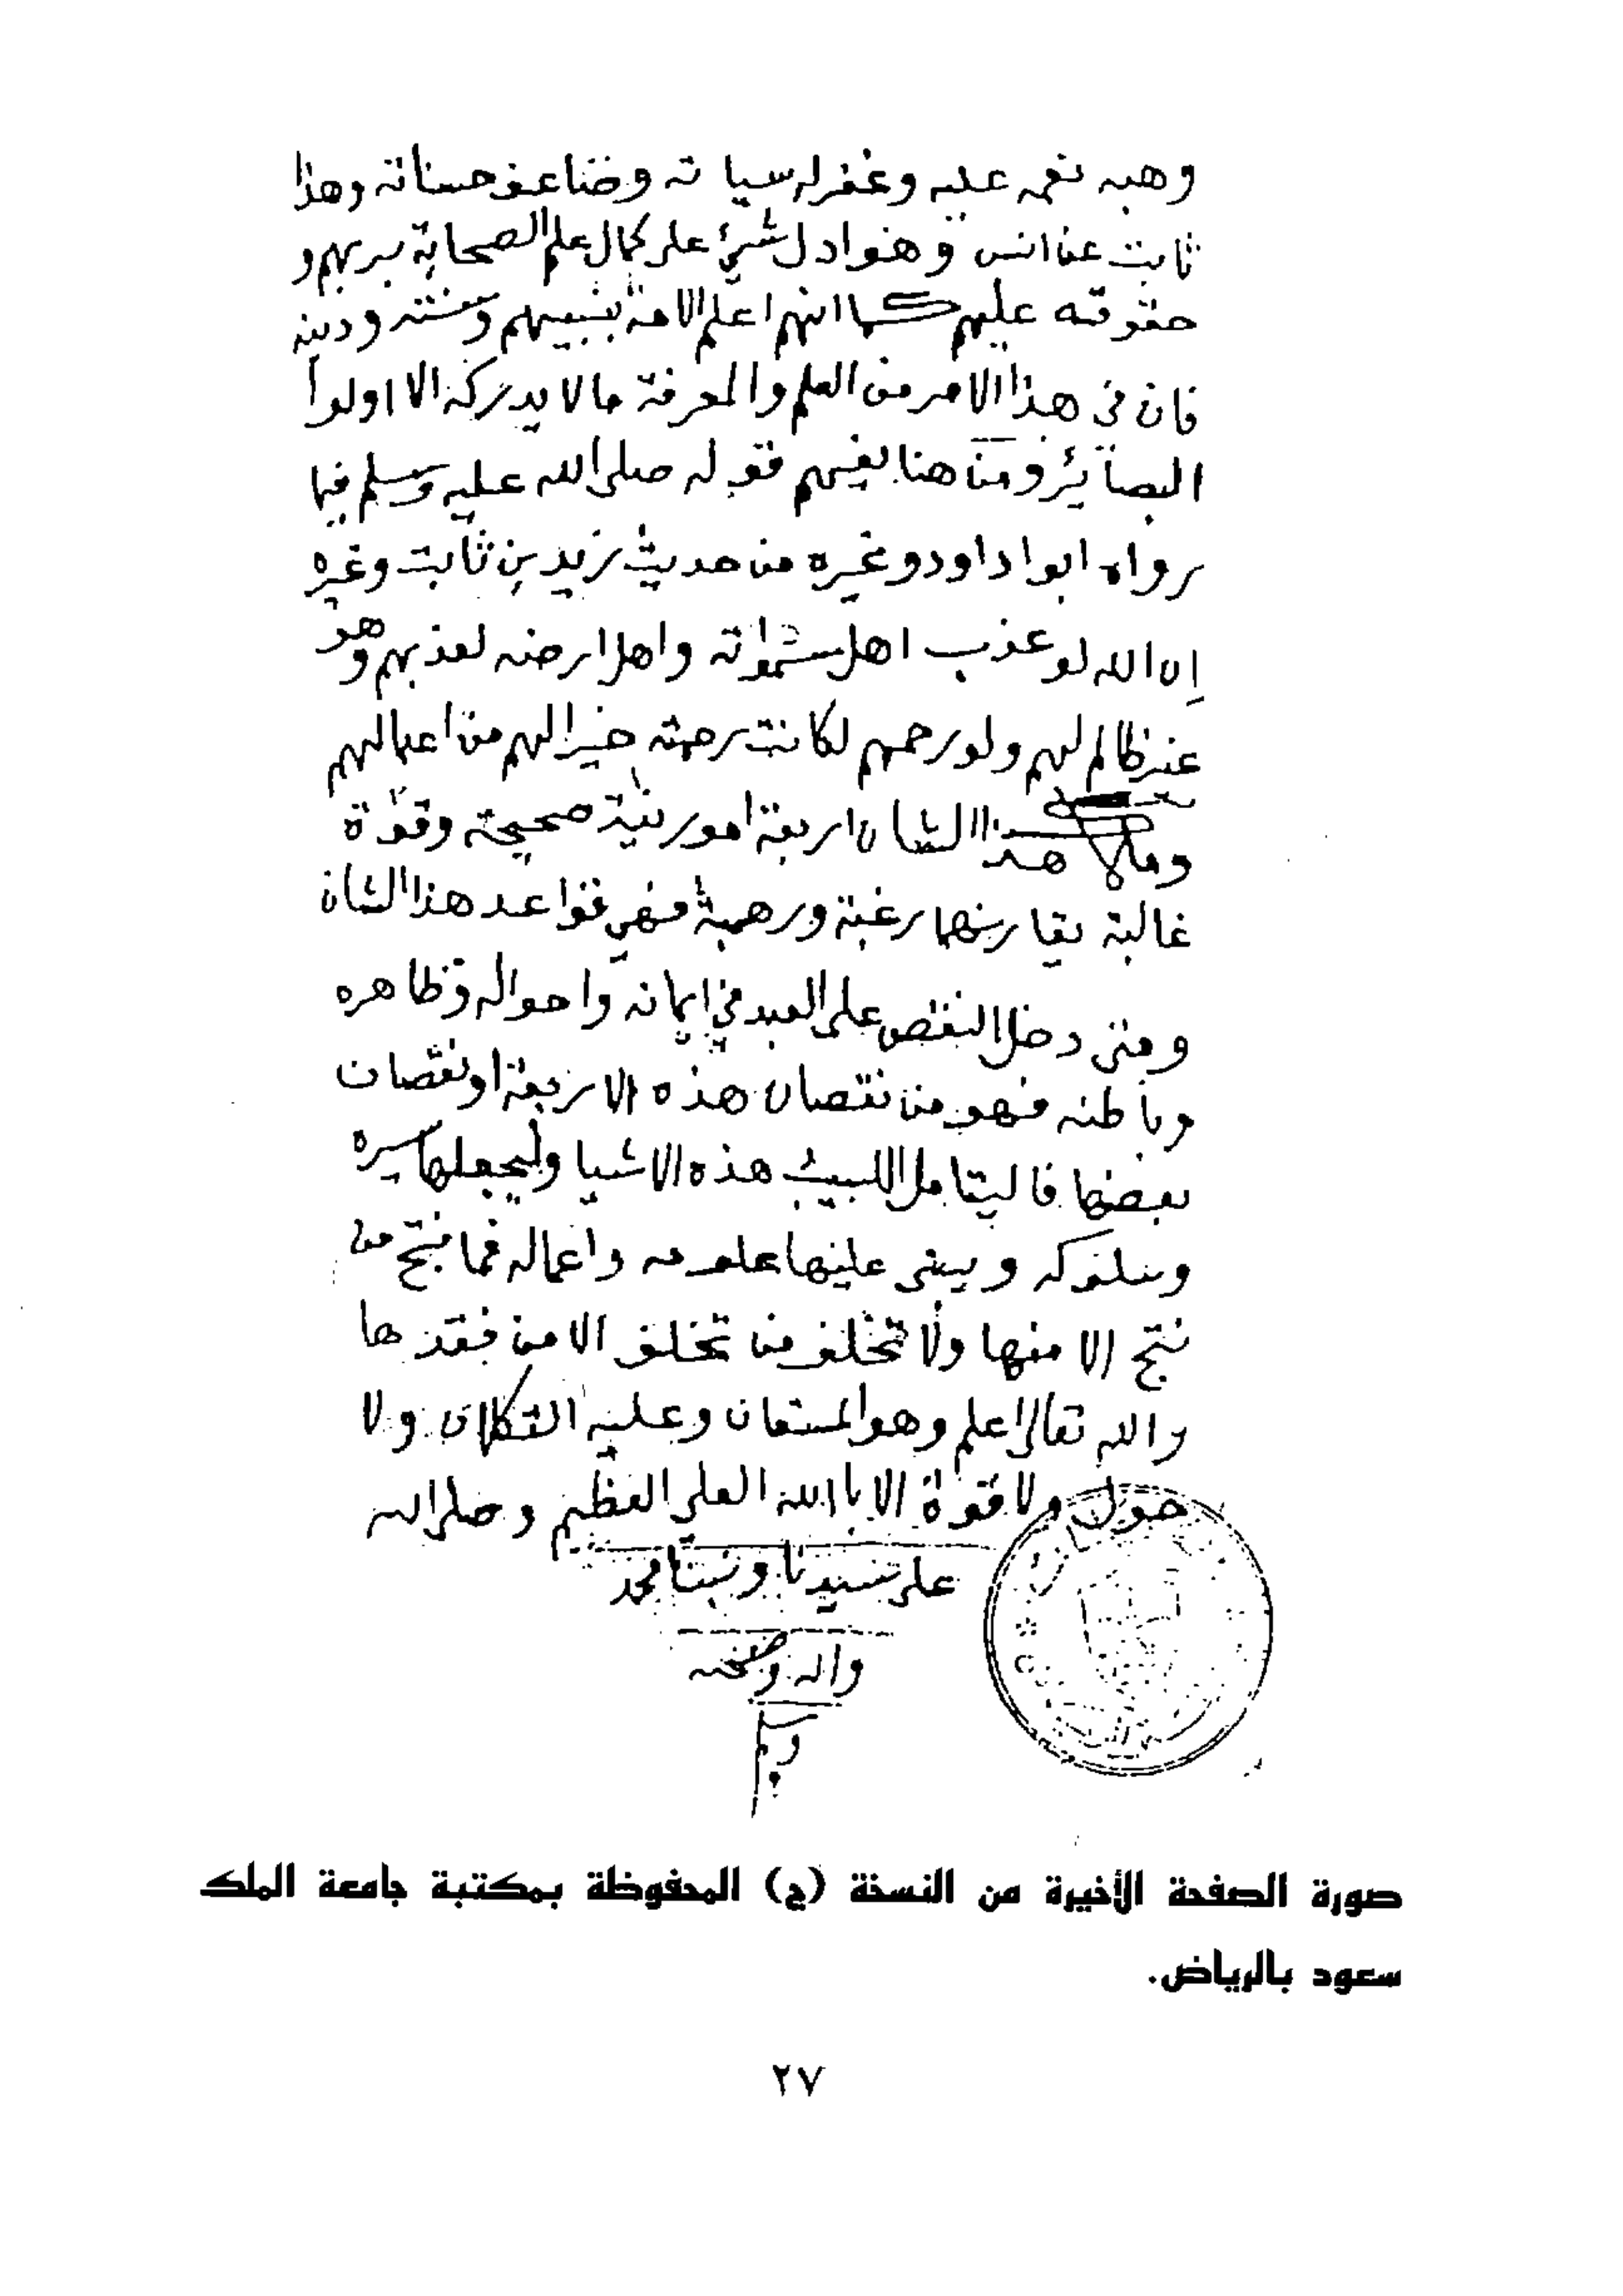 وهبه نعمه عليه وغفر له سياته وضاعف حسناته وهذا
ثابت عن انس وهو ادل شيء على كمال علم الصحابة بربهم و
حقوقه عليهم كما انهم اعلم الامة بنبيهم وسنته ودينه
فان في هذا الامر من العلم والمعرفة ما لا يدركه الا اولوا
البصائر ومن هنا يفهم قوله صلى الله عليه وسلم فيما
رواه ابوا داود وغيره من حديث زيد بن ثابت وغيره
إن الله لو عذب اهل سمواته واهل ارضه لعذبهم وهو
غير ظالم لهم ولو رحمهم لكانت رحمته خيرا لهم من اعمالهم
وملاك هذا الشان اربعة امور نية صحيحة وقوة
غالبة يقارنهما رغبة ورهبة فهي قواعد هذا الشان
ومتى دخل النقص على العبد في ايمانه واحواله وظاهره
وباطنه فهو من نقصان هذه الاربعة او نقصان
بعضها فاليتامل اللبيب هذه الاشيا وليجعلها سيره
وسلوكه ويبني عليها علومه واعماله فما نتج من
نتج الا منها ولا تخلف من تخلف الا من فقدها
والله تعالى اعلم وهو المستعان وعليه التكلان ولا
حول ولا قوة الا باالله العلي العظيم وصلى الله
على سيدنا ونبينا محمد
واله وصحبه
وسلم
صورة الصفحة الأخيرة من النسخة (ج) المحفوظة بمكتبة جامعة الملك
سعود بالرياض.
٢٧